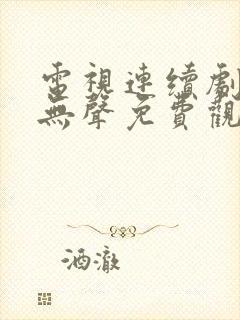 電視連續劇
無聲免費觀
酒澈